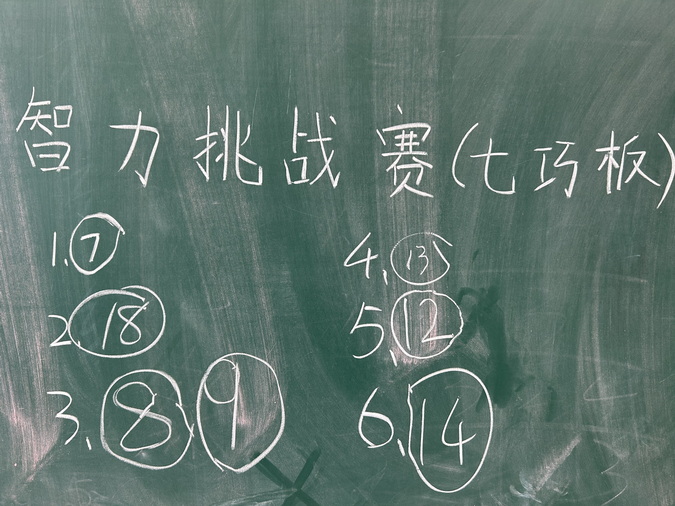 智力挑战赛(七巧板)
1、7
2、18
3、8 9
4、13
5、12
6、14